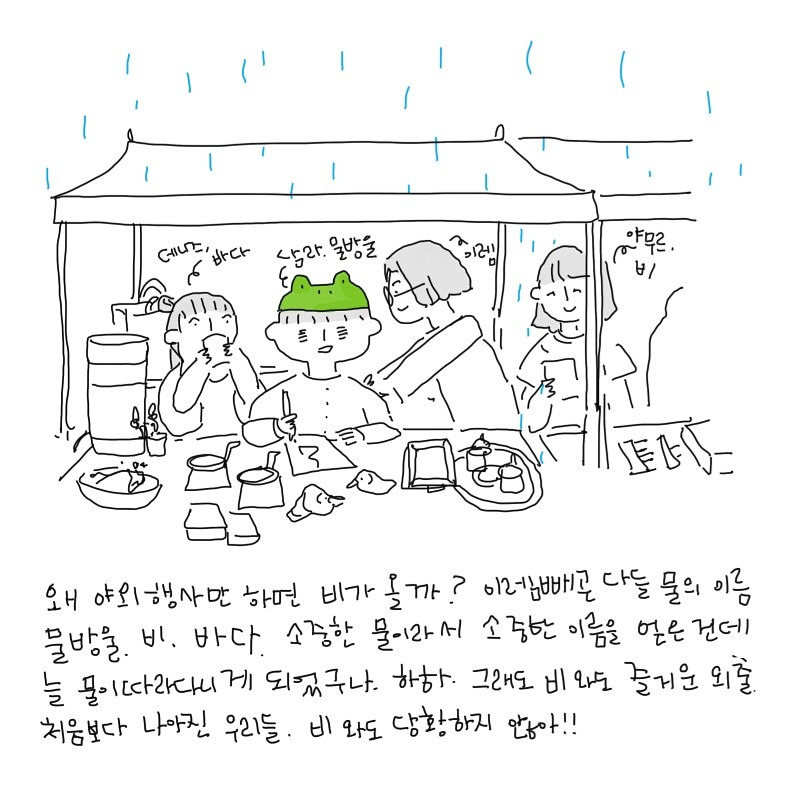 데니즈, 바다
남라. 물방울
이레
야무르.
비
왜 야외행사만 하면 비가 올까? 이레빼곤 다들 물의 이름
물방울. 비. 바다. 소중한 물이라서 소중한 이름을 얻은건데
늘 물이따라다니게 되었구나. 하하. 그래도 비와도 즐거운 외출.
처음보다 나아진 우리들. 비 와도 당황하지 않아!!